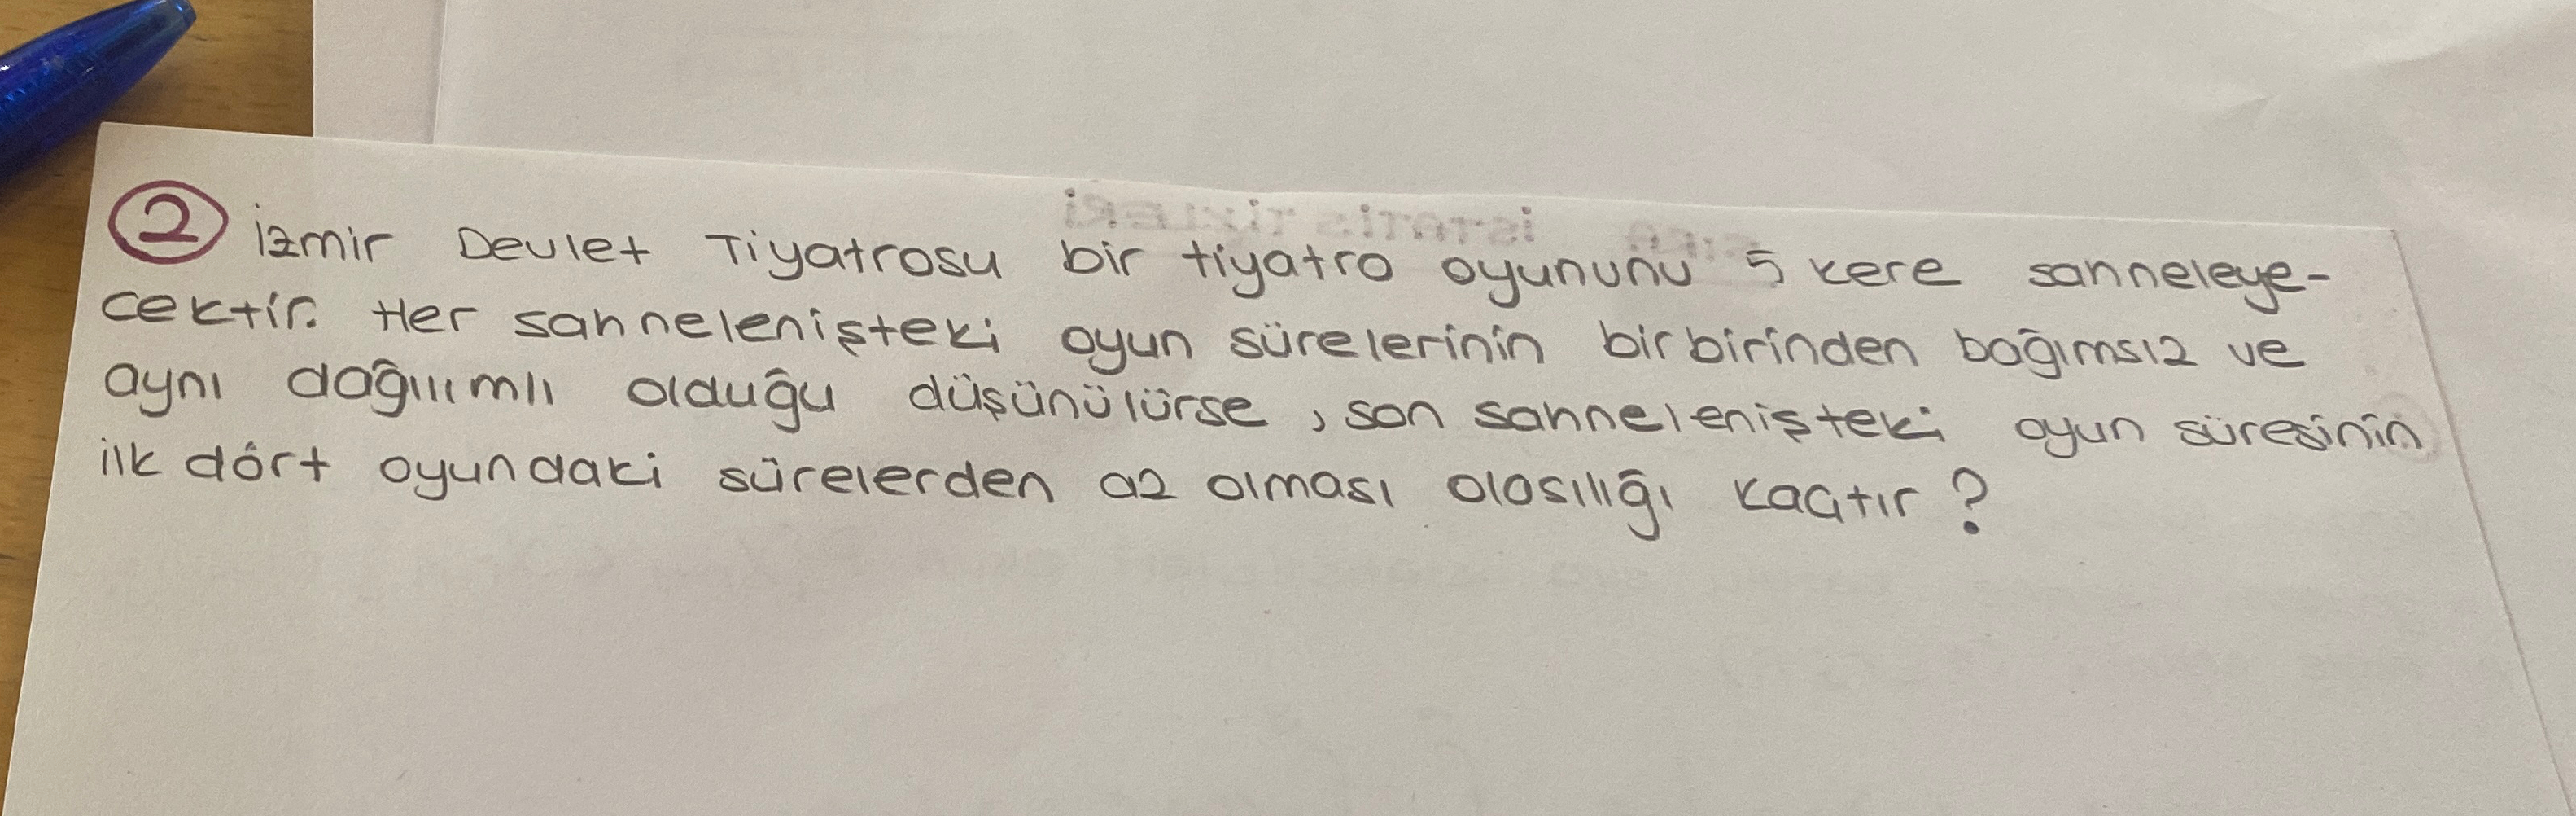 ② İzmir Devlet Tiyatrosu bir tiyatro oyununu 5 kere sahneleye-
cektir. Her sahnelenişteki oyun sürelerinin birbirinden bağımsız ve
aynı dağılımlı olduğu düşünülürse, son sahnelenişteki oyun süresinin
ilk dört oyundaki sürelerden az olması olasılığı kaçtır?